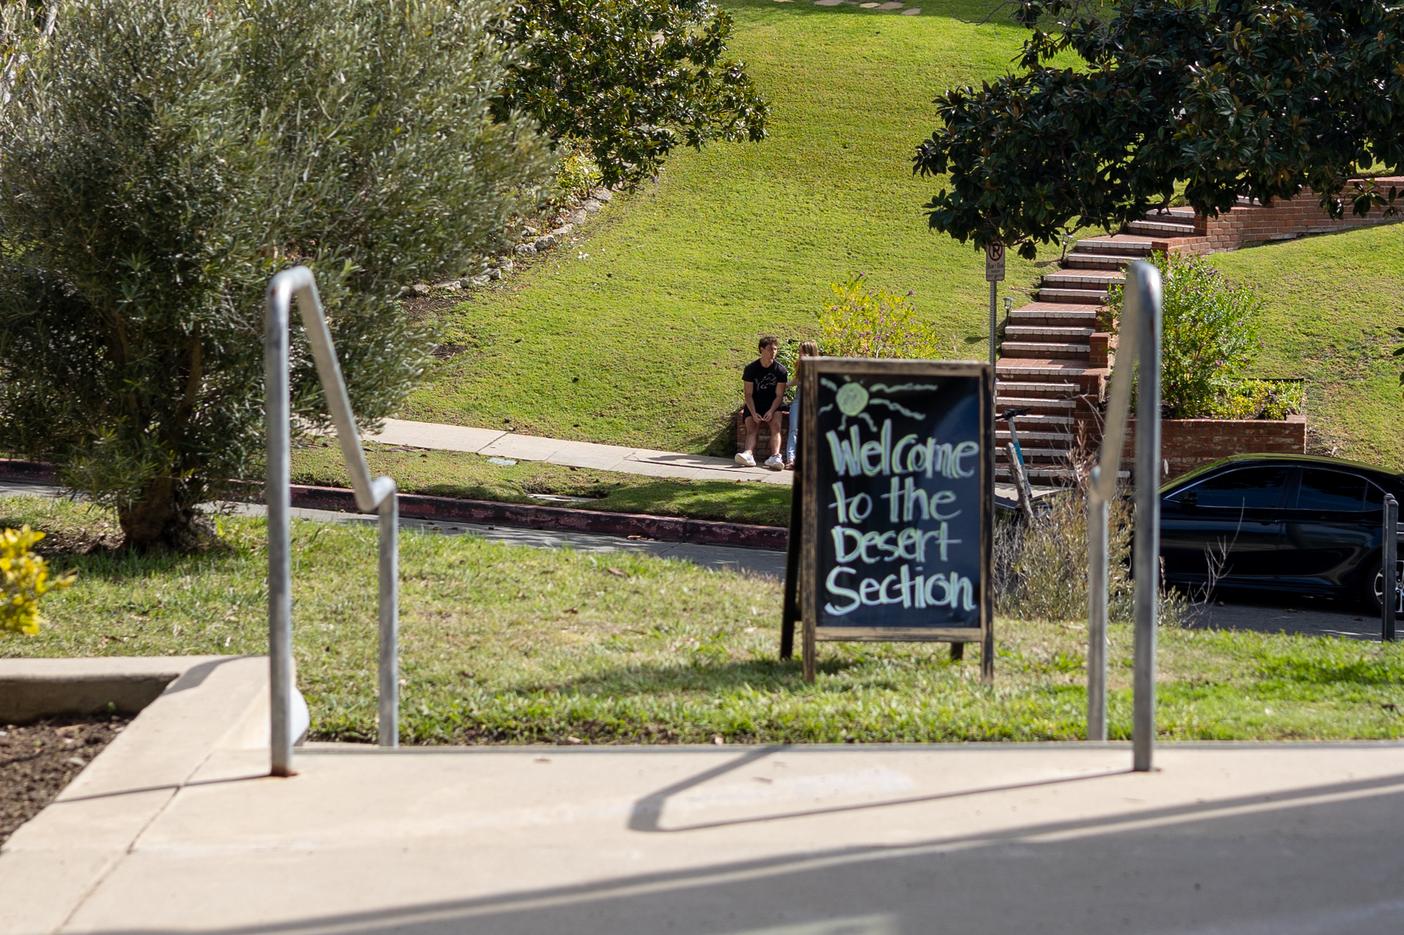 Welcome
to the
Desert
Section